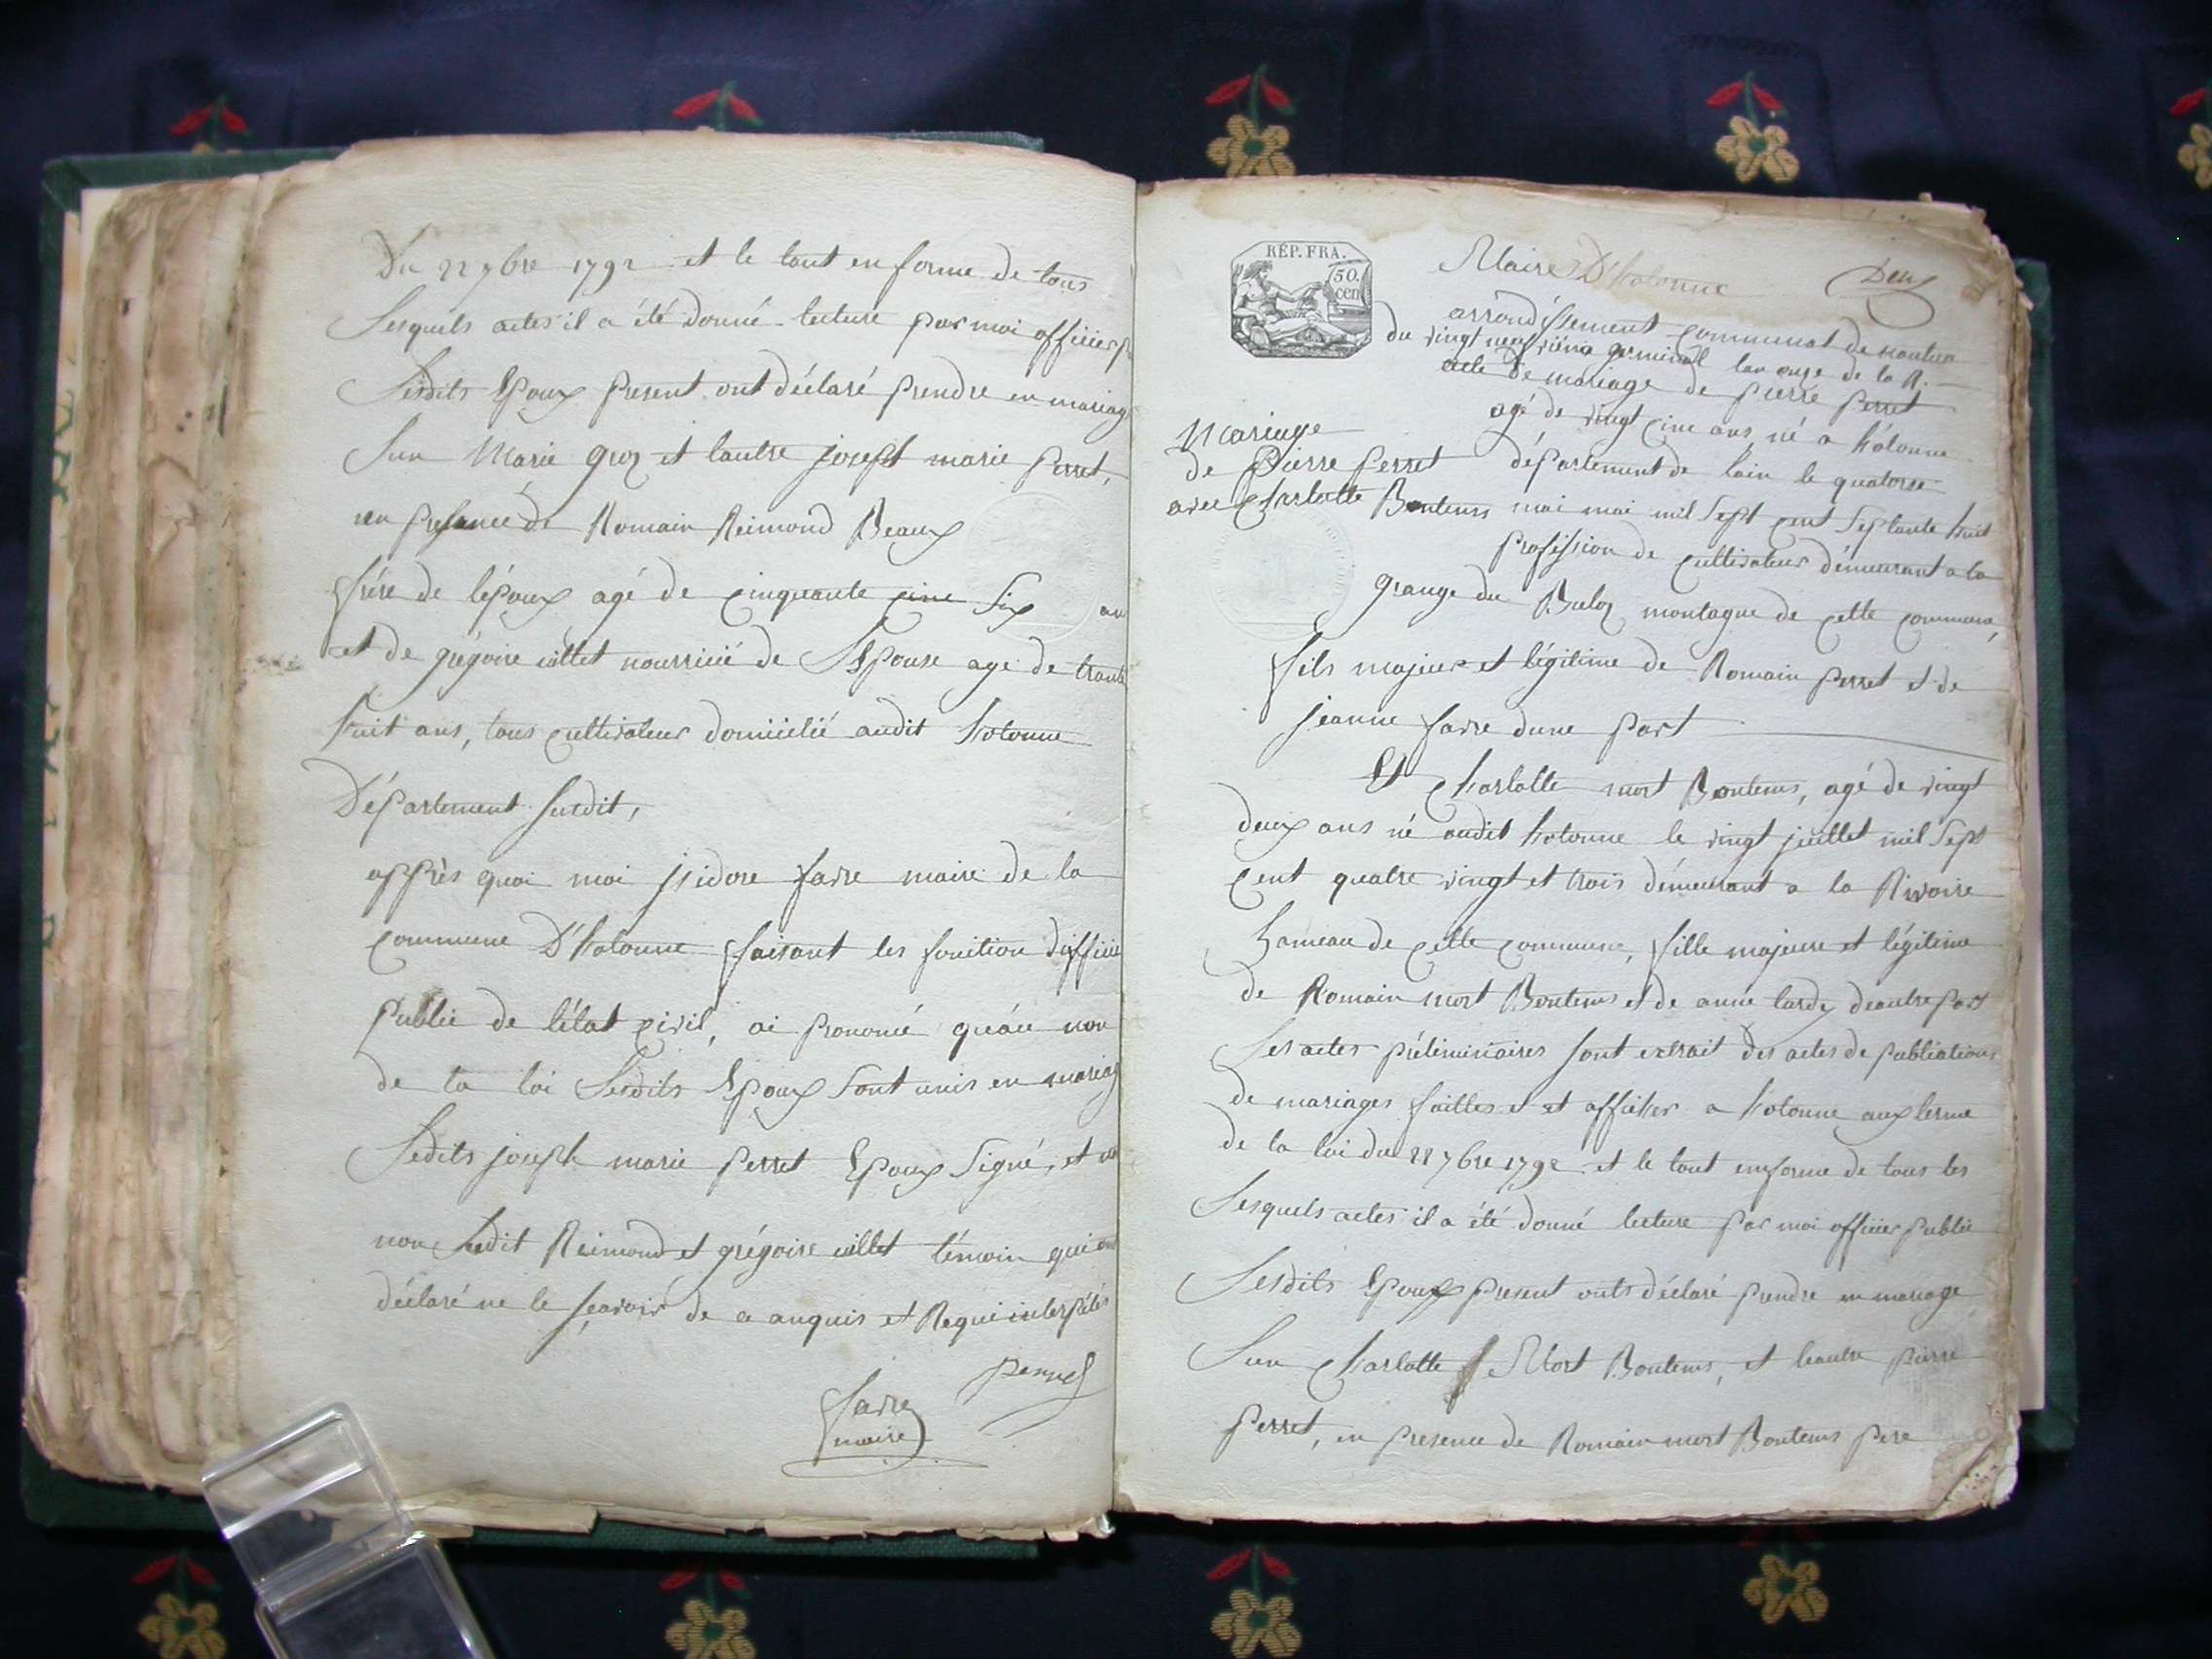 Du 22 7bre 1792 et le tout en forme de tous
Lesquels actes il a été donné lecture par moi officier p
Lesdits Epoux present ont déclaré prendre en mariag
Lun Marie groz et lautre joseph marie perret,
en presence de Romain Reimond Beaux
frére de lépoux agé de cinquante cinc six an
et de grégoire villet nourricié de LEpouse age de trante
huit ans, tous cultivateur domicilié audit hotonne
Département susdit,
apprès quoi moi jsidore favre maire de la
commune D'hotonne faisant les fonction dofficié
public de létat civil, ai prononcé quáu non
de la loi Lesdits Epoux sont unis en mariag
Ledits joseph marie perret Epoux signé, et
non Ledit Reimond et grégoire villet témoin qui ont
déclaré ne le sçavoir de ce anquis et Requi interpélés
perret
favre
maire
RÉP. FRA.
50.
cen
Maire D'hotonne
Deux
arrondissement communal de nantua
du vingt neuviéme germinal lan onze de la R.
acte de mariage de pierre perret
agé de vingt cinc ans né a hotonne
Mariage
de Pierre perret
avec charlotte Bontems
département de lain le quatorze
mai mai mil sept cent septante huit
profession de cultivateur démeurant a la
grange du Buloz montagne de cette commune,
fils majeur et légitime de Romain perret et de
jeanne favre dune part
Et charlotte mort Bontems, agé de vingt
deux ans né audit hotonne le vingt juillet mil sept
cent quatre vingt et trois démeurant a la Rivoire
hameau de cette commune, fille majeure et légitime
de Romain mort Bontems et de anne tardy deautre part
Les actes préliminaires sont extrait des actes de publications
de mariages faittes et et afficher a hotonne aux terme
de la loi du 22 7bre 1792 et le tout enforme de tous les
Lesquels actes il a été donné lecture par moi officier public
Lesdits Epoux present onts déclaré prendre en mariage
Lun charlotte Mort Bontems, et leautre pierre
perret, en presence de Romain mort Bontems pere